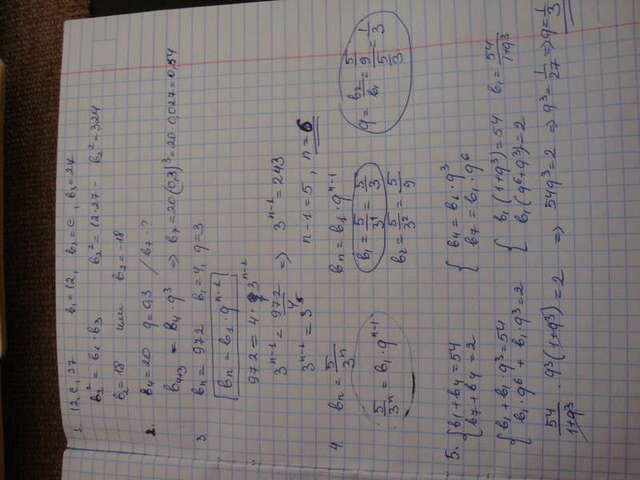 1. 12, c, 27 b₁=12, b₂=c, b₃=27
b₂² = b₁·b₃ b₂²=12·27= b₂²=324
b₂=18 или b₂=-18
2. b₄=20 q=0,3 / b₇-?
b₄₊₃ = b₄·q³ ⇒ b₇=20(0,3)³=20·0,027=0,54
3. bₙ=972 b₁=4, q=3
bₙ=b₁·qⁿ⁻¹
972=4·3ⁿ⁻¹
3ⁿ⁻¹=972/4 ⇒ 3ⁿ⁻¹=243
3ⁿ⁻¹=3⁵ n-1=5, n=6
4. bₙ=5/3ⁿ bₙ=b₁·qⁿ⁻¹
5/3ⁿ=b₁·qⁿ⁻¹ b₁=5/3¹=5/3 q=b₂/b₁=(5/9)/(5/3)=1/3
b₂=5/3²=5/9
5. {b₁+b₄=54 {b₄=b₁·q³
b₇+b₄=2 b₇=b₁·q⁶
{b₁+b₁q³=54 {b₁(1+q³)=54 b₁=54/1+q³
b₁·q⁶+b₁q³=2 b₁(q⁶+q³)=2
54/1+q³·q³(1+q³)=2 ⇒ 54q³=2 ⇒ q³=1/27 ⇒ q=1/3